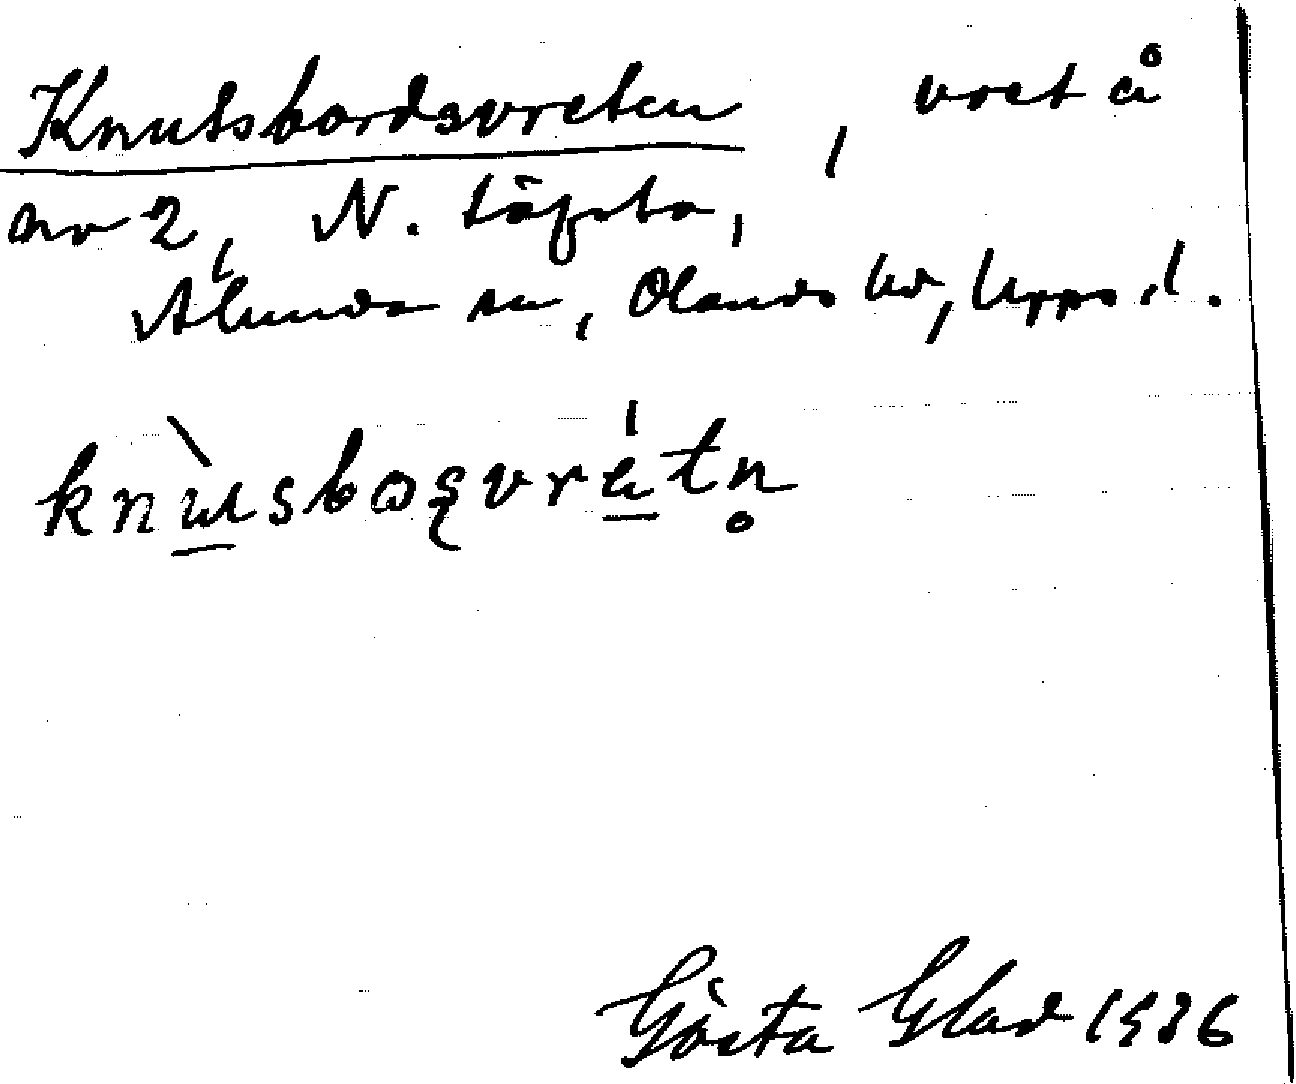 Knutsbordsvreten, vret å
nr 2, N. Löfsta,
Alunda sn, Olands hd, Upps. l.
knùsboʂvrétn̥
Gösta Glad 1936